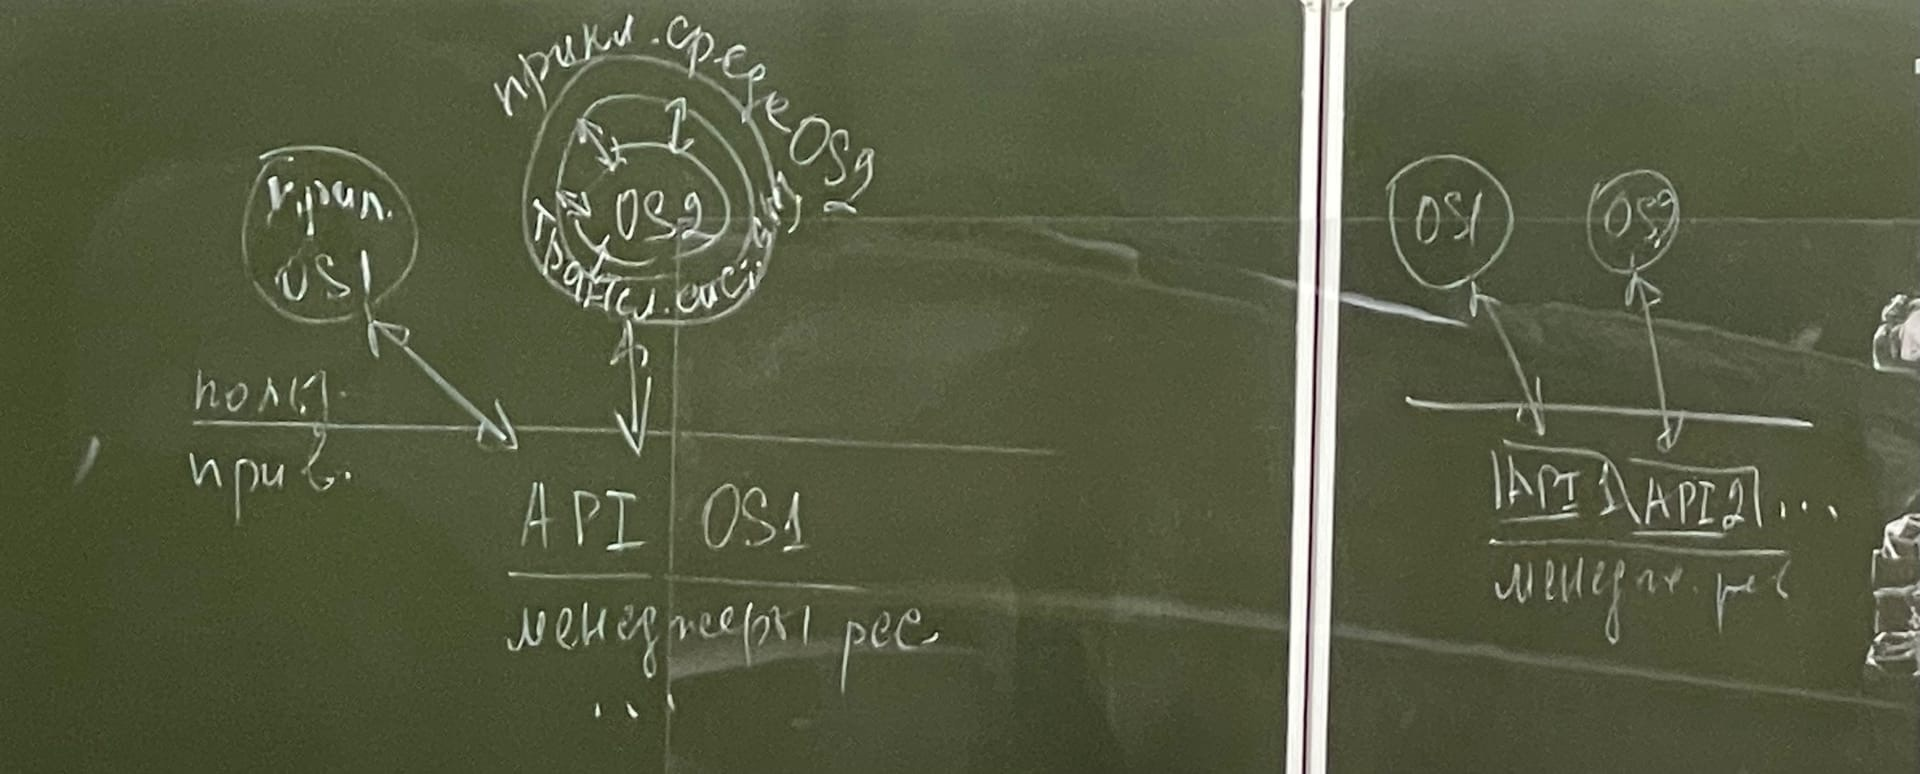 прикл. среде OS2
прил.
OS1
OS2
трансл. сист.
польз.
прив.
API OS1
менеджеры рес.
...
OS1
OS2
API 1 API 2 ...
менедж. рес